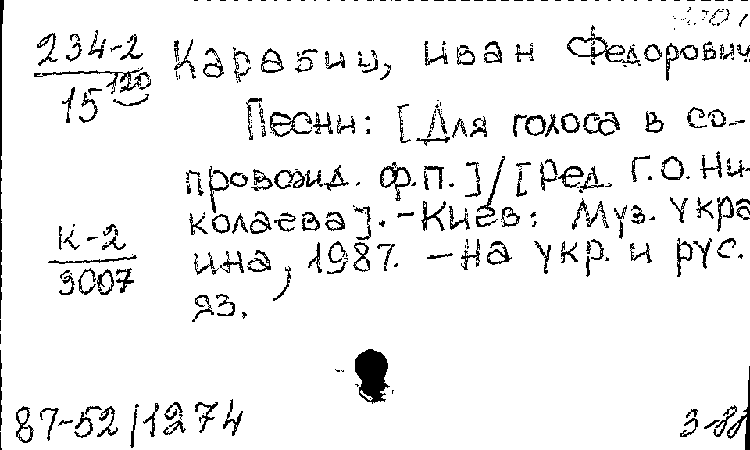 234-2
15 120
Карабиц, Иван Федорович
Песни: [Для голоса в со-
провожд. ф.п.]/[Ред. Г.О. Ни-
колаева]. - Киев: Муз. Укра
ина, 1987. - На укр. и рус.
яз.
К-2
3007
87-52/1274
3-88